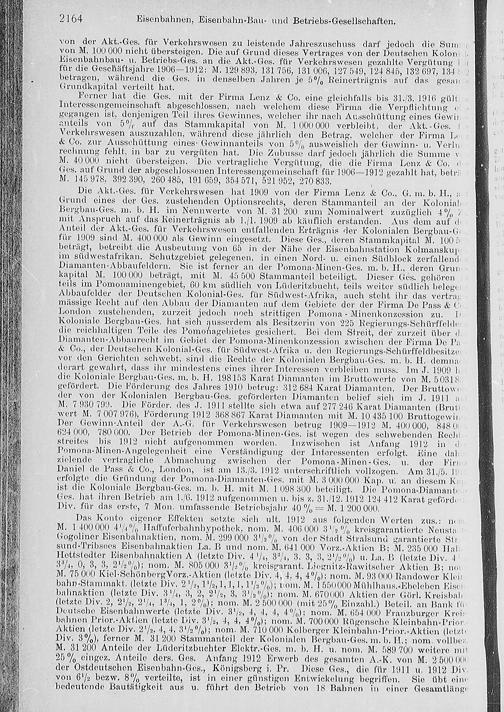 2164 Eisenbahnen, Eisenbahn-Bau- und Betriebs-Gesellschaften.
von der Akt.-Ges. für Verkehrswesen zu leistende Jahreszuschuss darf jedoch die
von M. 100 000 nicht übersteigen. Die auf Grund dieses Vertrages von der Deutschen
Eisenbahnbau- u. Betriebs-Ges. an die Akt.-Ges. für Verkehrswesen gezahlte Vergütung
für die Geschäftsjahre 1906–1912: M. 129 893, 131 756, 131 006, 127 549, 124 845, 132 697, 134
betragen, während die Ges. in denselben Jahren je 5% Reinerträgnis auf das
Grundkapital verteilt hat.
Ferner hat die Ges. mit der Firma Lenz & Co. eine gleichfalls bis 31./3. 1916
Interessengemeinschaft abgeschlossen, nach welchem diese Firma die Verpflichtung
gegangen ist, denjenigen Teil ihres Gewinnes, welcher ihr nach Ausschüttung eines
anteils von 5% auf das Stammkapital von M. 1 000 000 verbleibt, der Akt.-Ges.
Verkehrswesen auszuzahlen, während diese jährlich den Betrag, welcher der Firma
& Co. zur Ausschüttung eines Gewinnanteils von 5% ausweislich der Gewinn- u.
rechnung fehlt, in bar zu vergüten hat. Die Zubusse darf jedoch jährlich die Summe
M. 40 000 nicht übersteigen. Die vertragliche Vergütung, die die Firma Lenz & Co.
Ges. auf Grund der abgeschlossenen Interessengemeinschaft für 1906–1912 gezahlt hat,
M. 145 978, 392 390, 260 485, 191 659, 354 571, 521 952, 270 833.
Die Akt.-Ges. für Verkehrswesen hat 1909 von der Firma Lenz & Co. G. m. b. H.,
Grund eines der Ges. zustehenden Optionsrechts, deren Stammanteil an der
Bergbau-Ges. m. b. H. im Nennwerte von M. 31 200 zum Nominalwert zuzüglich 4%
mit Anspruch auf das Reinerträgnis ab 1./1. 1909 ab käuflich erstanden. Aus dem auf
Anteil der Akt.-Ges. für Verkehrswesen entfallenden Erträgnis der Kolonialen
für 1909 sind M. 400 000 als Gewinn eingesetzt. Diese Ges., deren Stammkapital M.
beträgt, betreibt die Ausbeutung von in der Nähe der Eisenbahnstation
im südwestafrikan. Schutzgebiet gelegenen, in einen Nord- u. einen Südblock
Diamanten-Abbaufeldern. Sie ist ferner an der Pomona-Minen-Ges. m. b. H., deren
kapital M. 100 000 beträgt, mit M. 45 500 Stammanteil beteiligt. Dieser Ges. gehören
teils im Pomonaminengebiet, 60 km südlich von Lüderitzbucht, teils weiter südlich
Abbaufelder der Deutschen Kolonial-Ges. für Südwest-Afrika, auch steht ihr das
mässige Recht auf den Abbau der Diamanten auf dem Gebiete der der Firma De Pass &
London zustehenden, zurzeit jedoch noch strittigen Pomona-Minenkonzession zu.
Koloniale Bergbau-Ges. hat sich ausserdem als Besitzerin von 225
die reichhaltigen Teile des Pomonagebietes gesichert. Bei dem Streit, der zurzeit über
Diamanten-Abbaurecht im Gebiet der Pomona-Minenkonzession zwischen der Firma De
& Co., der Deutschen Kolonial-Ges. für Südwest-Afrika u. den
vor den Gerichten schwebt, sind die Rechte der Kolonialen Bergbau-Ges. m. b. H.
derart gewahrt, dass ihr mindestens eines ihrer Interessen verbleiben muss. Im J. 1909
die Koloniale Bergbau-Ges. m. b. H. 198 153 Karat Diamanten im Bruttowerte von M.
gefördert. Die Förderung des Jahres 1910 betrug: 312 684 Karat Diamanten. Der
der von der Kolonialen Bergbau-Ges. geförderten Diamanten belief sich im J. 1911
M. 7 930 799. Die Förder. des J. 1911 stellte sich etwa auf 277 246 Karat Diamanten
wert M. 7 007 976), Förderung 1912 368 867 Karat Diamanten mit M. 10 435 100
Der Gewinn-Anteil der A.-G. für Verkehrswesen betrug 1909–1912 M. 400 000,
624 000, 780 000. Der Betrieb der Pomona-Minen-Ges. ist wegen des schwebenden
streites bis 1912 nicht aufgenommen worden. Inzwischen ist Anfang 1912 in
Pomona-Minen-Angelegenheit eine Verständigung der Interessenten erfolgt. Eine
zielende vertragliche Abmachung zwischen der Pomona-Minen-Ges. u. der
Daniel de Pass & Co., London, ist am 13./3. 1912 unterschriftlich vollzogen. Am
erfolgte die Gründung der Pomona-Diamanten-Ges. mit M. 3 000 000 Kap. u. an diesem
ist die Koloniale Bergbau-Ges. m. b. H. mit M. 1 098 300 beteiligt. Die
Ges. hat ihren Betrieb am 1./6. 1912 aufgenommen u. bis z. 31./12. 1912 124 412 Karat
Div. für das erste, 7 Mon. umfassende Betriebsjahr 40% = M. 1 200 000.
Das Konto eigener Effekten setzte sich ult. 1912 aus folgenden Werten zus.:
M. 1 400 000 4¼% Haffuferbahnhypothek, nom. M. 406 000 3½% kreisgarantierte
Gogoliner Eisenbahnaktien, nom. M. 299 000 3½% von der Stadt Stralsund garantierte
sund-Tribsees Eisenbahnaktien La. B und nom. M. 641 000 Vorz.-Aktien B; M. 235 000
Hettstedter Eisenbahnaktien A (letzte Div. 4¼, 3¾, 3, 3, 3, 2½%) u. La. B (letzte Div.
3¾, 0, 3, 3, 2½%); nom. M. 805 000 3½% kreisgarant. Liegnitz-Rawitscher Aktien B;
M. 75 000 Kiel-SchönbergVorz.-Aktien (letzte Div. 4, 4, 4, 4%); nom. M. 93 000 Randower
bahn-Stammakt. (letzte Div. 2½, 1½, 1, 1, 1½%); nom. M. 1 550 000 Mühlhaus.-Ebeleben
bahnaktien (letzte Div. 3¼, 3, 2, 2½, 3, 3½%); nom. M. 670 000 Aktien der Görl.
(letzte Div. 2, 2½, 2¼, 1¾, 1, 2%); nom. M. 2 500 000 (mit 25% Einzahl.) Beteil. an Bank
Deutsche Eisenbahnwerte (letzte Div. 3½, 4, 4, 4, 4%); nom. M. 654 000 Franzburger
bahnen Prior.-Aktien (letzte Div. 4, 4, 4, 4%); nom. M. 700 000 Rügensche Kleinbahn-Prior.
Aktien (letzte Div. 2½, 4, 4, 3½%); nom. M. 710 000 Kolberger Kleinbahn-Prior.-Aktien
Div. 3%), ferner M. 31 200 Stammanteil der Kolonialen Bergbau-Ges. m. b. H.; nom.
M. 31 200 Anteile der Lüderitzbuchter Elektr.-Ges. m. b. H. u. nom. M. 589 700 weitere
25% eingez. Anteile ders. Ges. Anfang 1912 Erwerb des gesamten A.-K. von M. 2 500 000
der Ostdeutschen Eisenbahn-Ges., Königsberg i. Pr. Diese Ges., die für 1911 u. 1912
von 6½ bezw. 8% verteilte, ist in einer günstigen Entwickelung begriffen. Sie übt
bedeutende Bautätigkeit aus u. führt den Betrieb von 18 Bahnen in einer